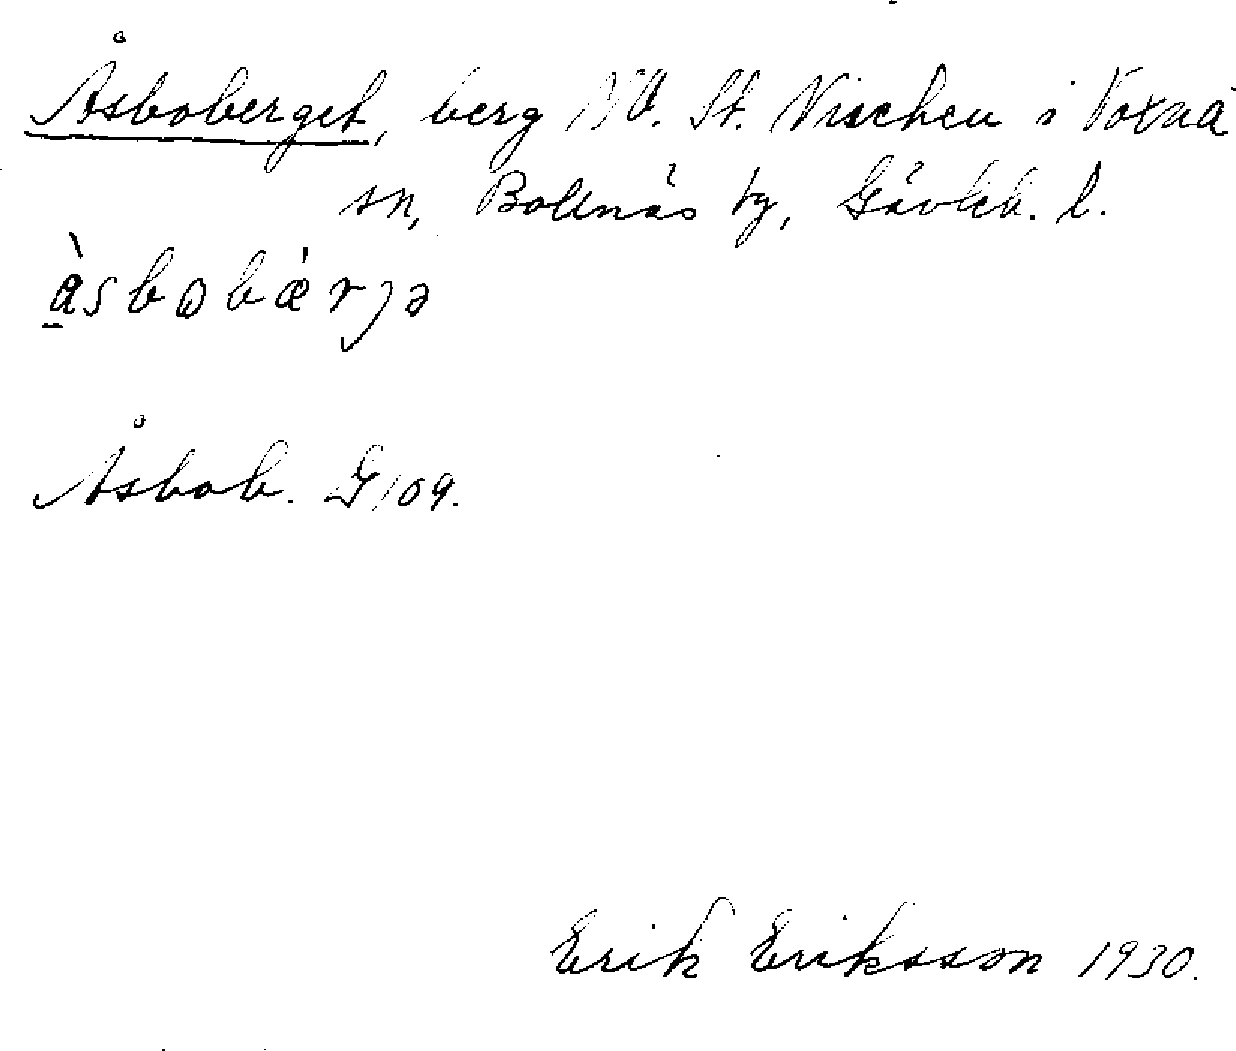 Åsboberget, berg NV. St. Vischen i Voxna
sn, Bollnäs tg, Gävleb. l.
àsbobǽrjə
Åsbob. G 109.
Erik Eriksson 1930.